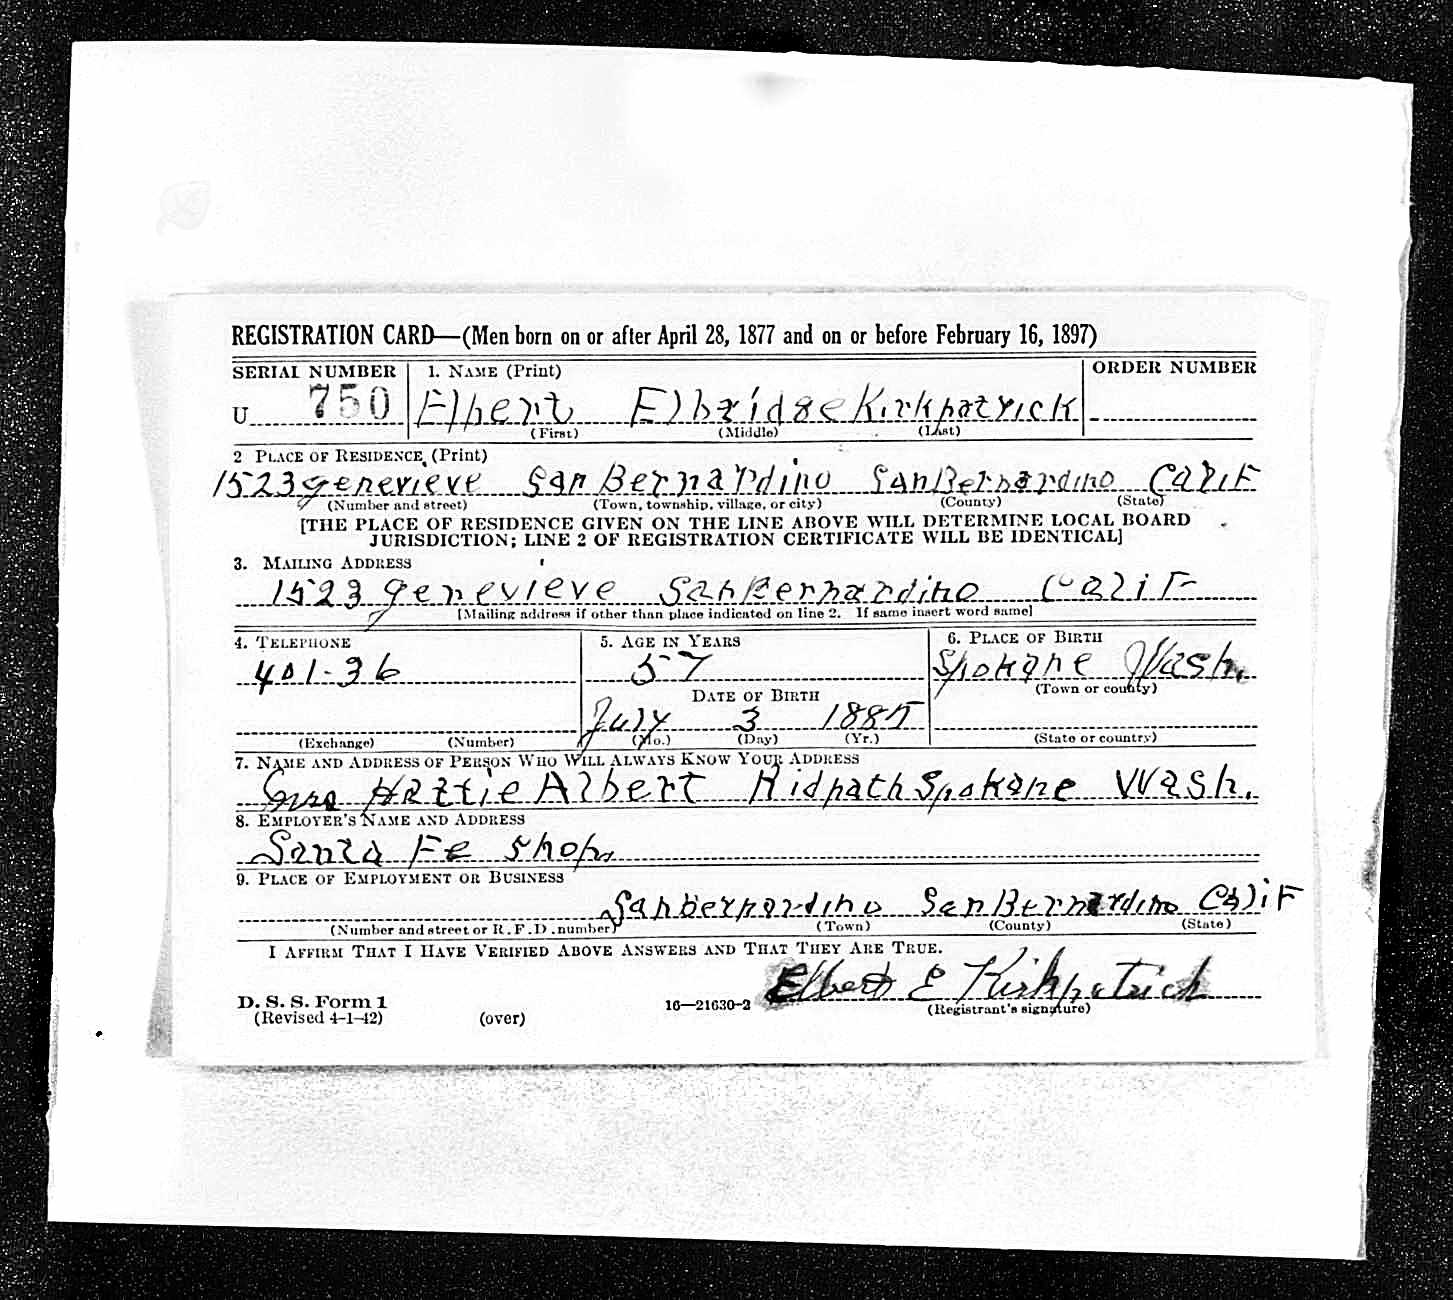 REGISTRATION CARD—(Men born on or after April 28, 1877 and on or before February 16, 1897)
SERIAL NUMBER 1. NAME (Print) ORDER NUMBER
U 750 Elbert Elbridge Kirkpatrick
(First) (Middle) (Last)
2 PLACE OF RESIDENCE (Print)
1523 genevieve San Bernardino San Bernardino CaliF
(Number and street) (Town, township, village, or city) (County) (State)
[THE PLACE OF RESIDENCE GIVEN ON THE LINE ABOVE WILL DETERMINE LOCAL BOARD
JURISDICTION; LINE 2 OF REGISTRATION CERTIFICATE WILL BE IDENTICAL]
3. MAILING ADDRESS
1523 genevieve San Bernardino CaliF
[Mailing address if other than place indicated on line 2. If same insert word same]
4. TELEPHONE 5. AGE IN YEARS 6. PLACE OF BIRTH
401-36 57 Spokane Wash.
DATE OF BIRTH (Town or county)
July 3 1885
(Exchange) (Number) (Mo.) (Day) (Yr.) (State or country)
7. NAME AND ADDRESS OF PERSON WHO WILL ALWAYS KNOW YOUR ADDRESS
Mrs Hattie Albert Ridpath Spokane Wash.
8. EMPLOYER'S NAME AND ADDRESS
Santa Fe Shop,
9. PLACE OF EMPLOYMENT OR BUSINESS
Sanbernardino San Bernardino CaliF
(Number and street or R. F. D. number) (Town) (County) (State)
I AFFIRM THAT I HAVE VERIFIED ABOVE ANSWERS AND THAT THEY ARE TRUE.
Elbert E Kirkpatrick
D. S. S. Form 1
(Revised 4-1-42) (over) 16—21630-2 (Registrant's signature)